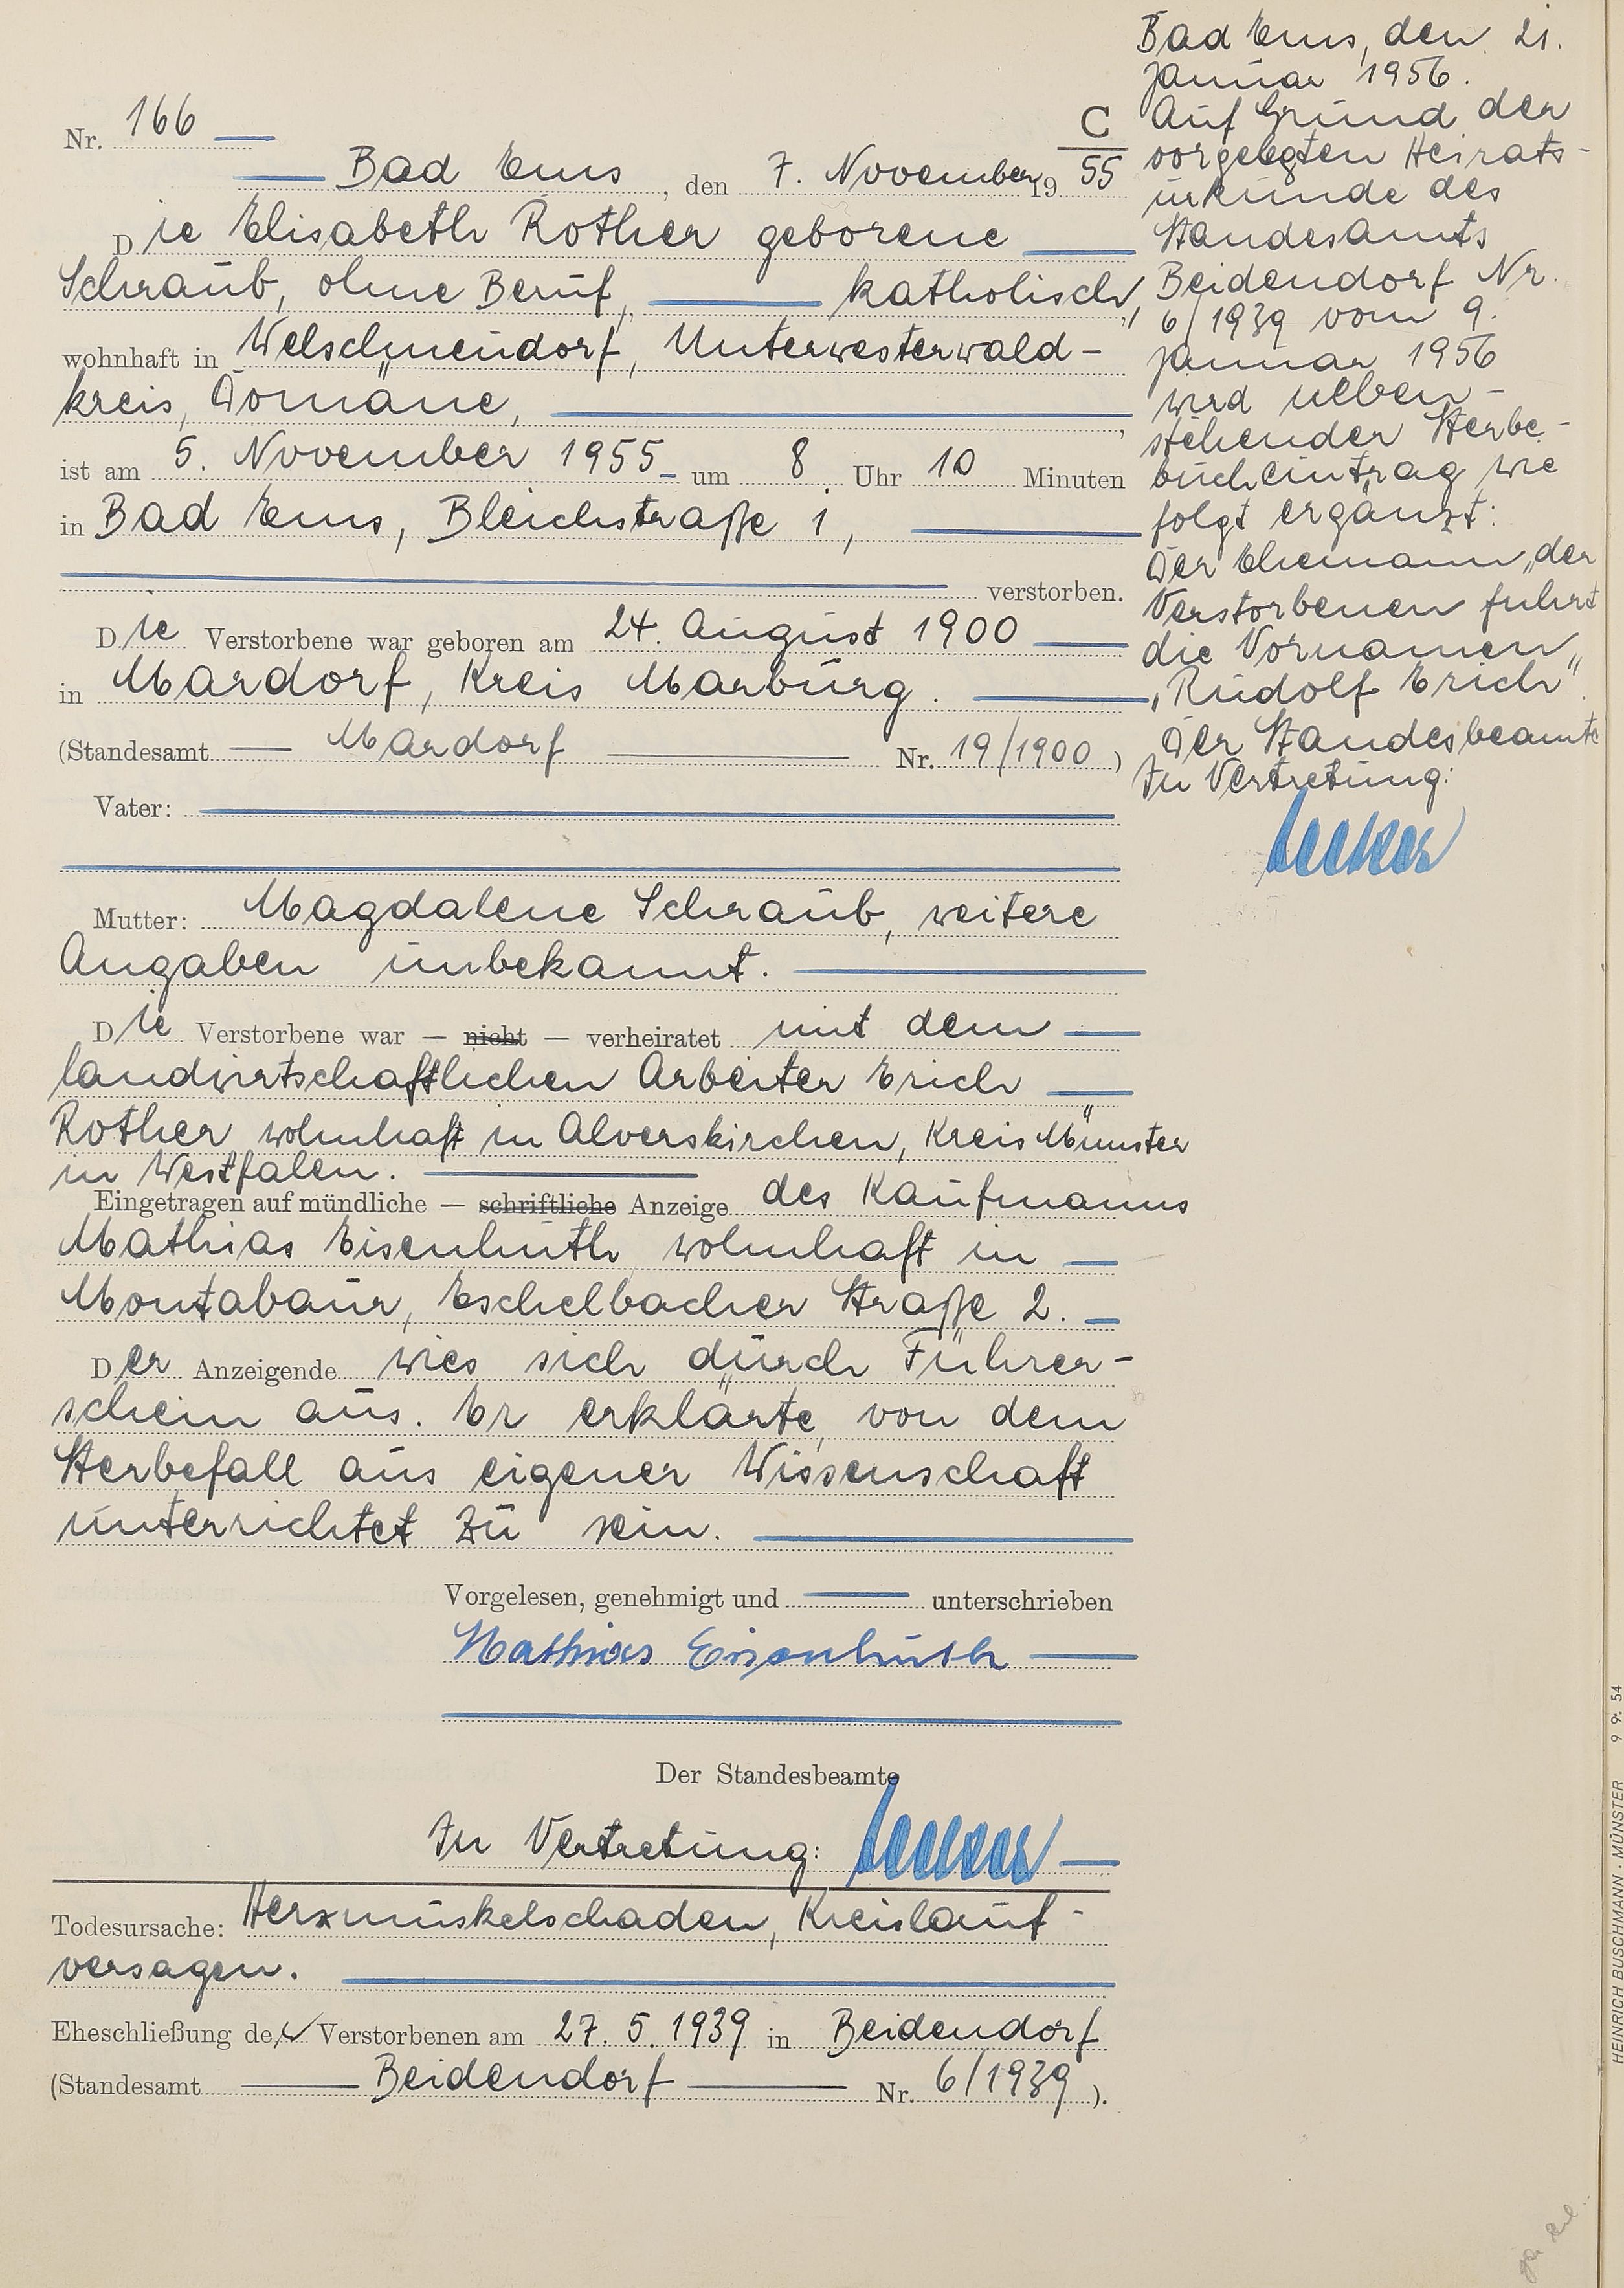 Nr. 166
C
Bad Ems, den 7. November 19 55
Die Elisabeth Rother geborene
Schraub, ohne Beruf, katholisch,
wohnhaft in Welschneudorf, Unterwesterwald-
kreis, Domäne,
ist am 5. November 1955 um 8 Uhr 10 Minuten
in Bad Ems, Bleichstraße 1,
verstorben.
Die Verstorbene war geboren am 24. August 1900
in Mardorf, Kreis Marburg.
(Standesamt Mardorf Nr. 19/1900)
Vater:
Mutter: Magdalene Schraub, weitere
Angaben unbekannt.
Die Verstorbene war — nicht — verheiratet mit dem
landwirtschaftlichen Arbeiter Erich
Rother wohnhaft in Alverskirchen, Kreis Münster
in Westfalen.
Eingetragen auf mündliche — schriftliche Anzeige des Kaufmanns
Mathias Eisenhuth wohnhaft in
Montabaur, Eschelbacher Straße 2.
Der Anzeigende wies sich durch Führer-
schein aus. Er erklärte, von dem
Sterbefall aus eigener Wissenschaft
unterrichtet zu sein.
Vorgelesen, genehmigt und unterschrieben
Mathias Eisenhuth
Der Standesbeamte
In Vertretung:
Todesursache: Herzmuskelschaden, Kreislauf-
versagen.
Eheschließung der Verstorbenen am 27. 5. 1939 in Beidendorf
(Standesamt Beidendorf Nr. 6/1939).
Bad Ems, den 21.
Januar 1956.
Auf Grund der
vorgelegten Heirats-
urkunde des
Standesamts
Beidendorf Nr.
6/1939 vom 9.
Januar 1956
wird neben-
stehender Sterbe-
bucheintrag wie
folgt ergänzt:
Der Ehemann der
Verstorbenen führt
die Vornamen
"Rudolf Erich".
Der Standesbeamte
In Vertretung:
HEINRICH BUSCHMANN · MÜNSTER 9 9. 54